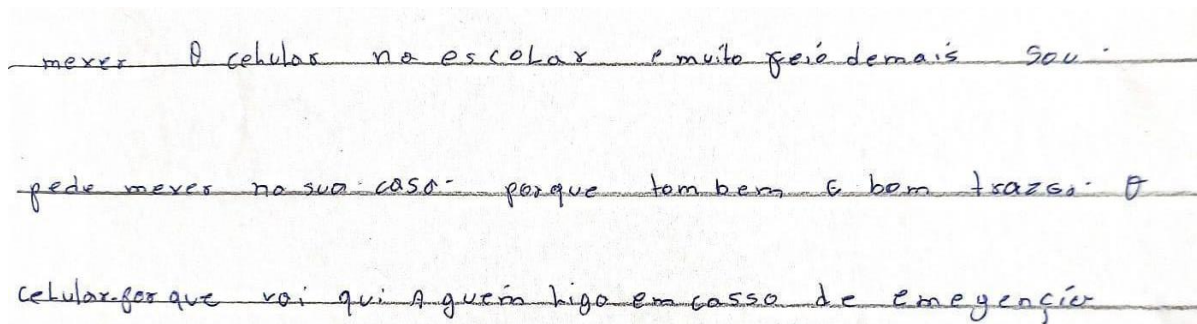 mexer O celular na escolar e muito feio demais sou.
pede mexer na sua casa- porque tom bem é bom trazer. O
celular-por que vai qui A guem ligo em casso de emegençia